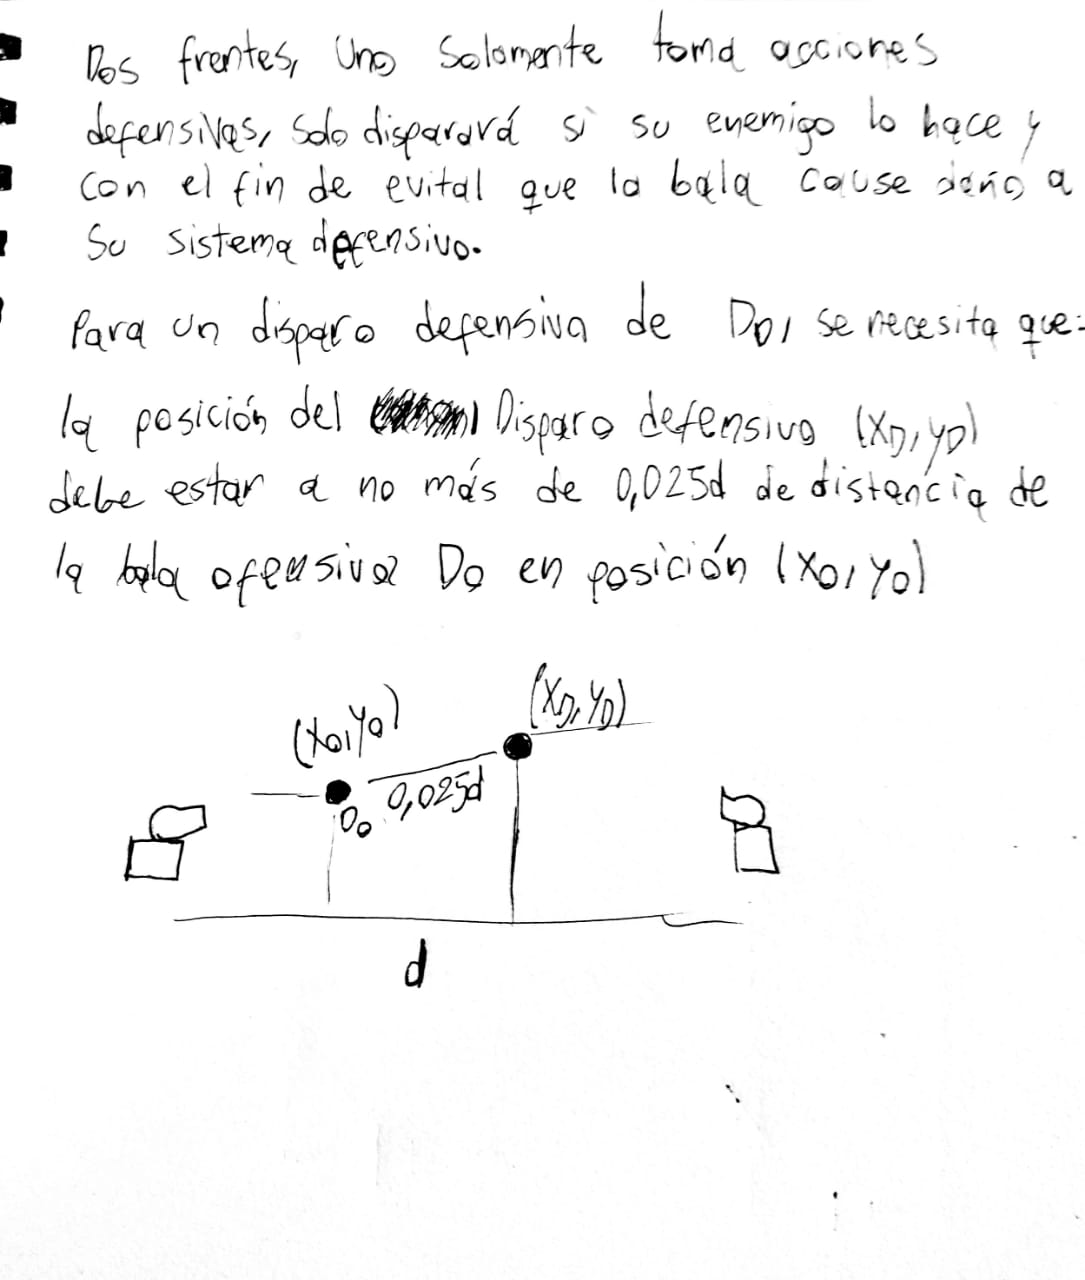 Dos frentes, Uno Solamente toma acciones
defensivas, solo disparará si su enemigo lo hace y
con el fin de evital que la bala cause daño a
Su sistema defensivo.
Para un disparo defensiva de DD, se necesita que:
la posición del Disparo defensivo (XD, yD)
debe estar a no más de 0,025d de distancia de
la bala ofensiva Do en posición (xo, yo)
(XD, YD)
(xo, yo)
0,025d
Do
d